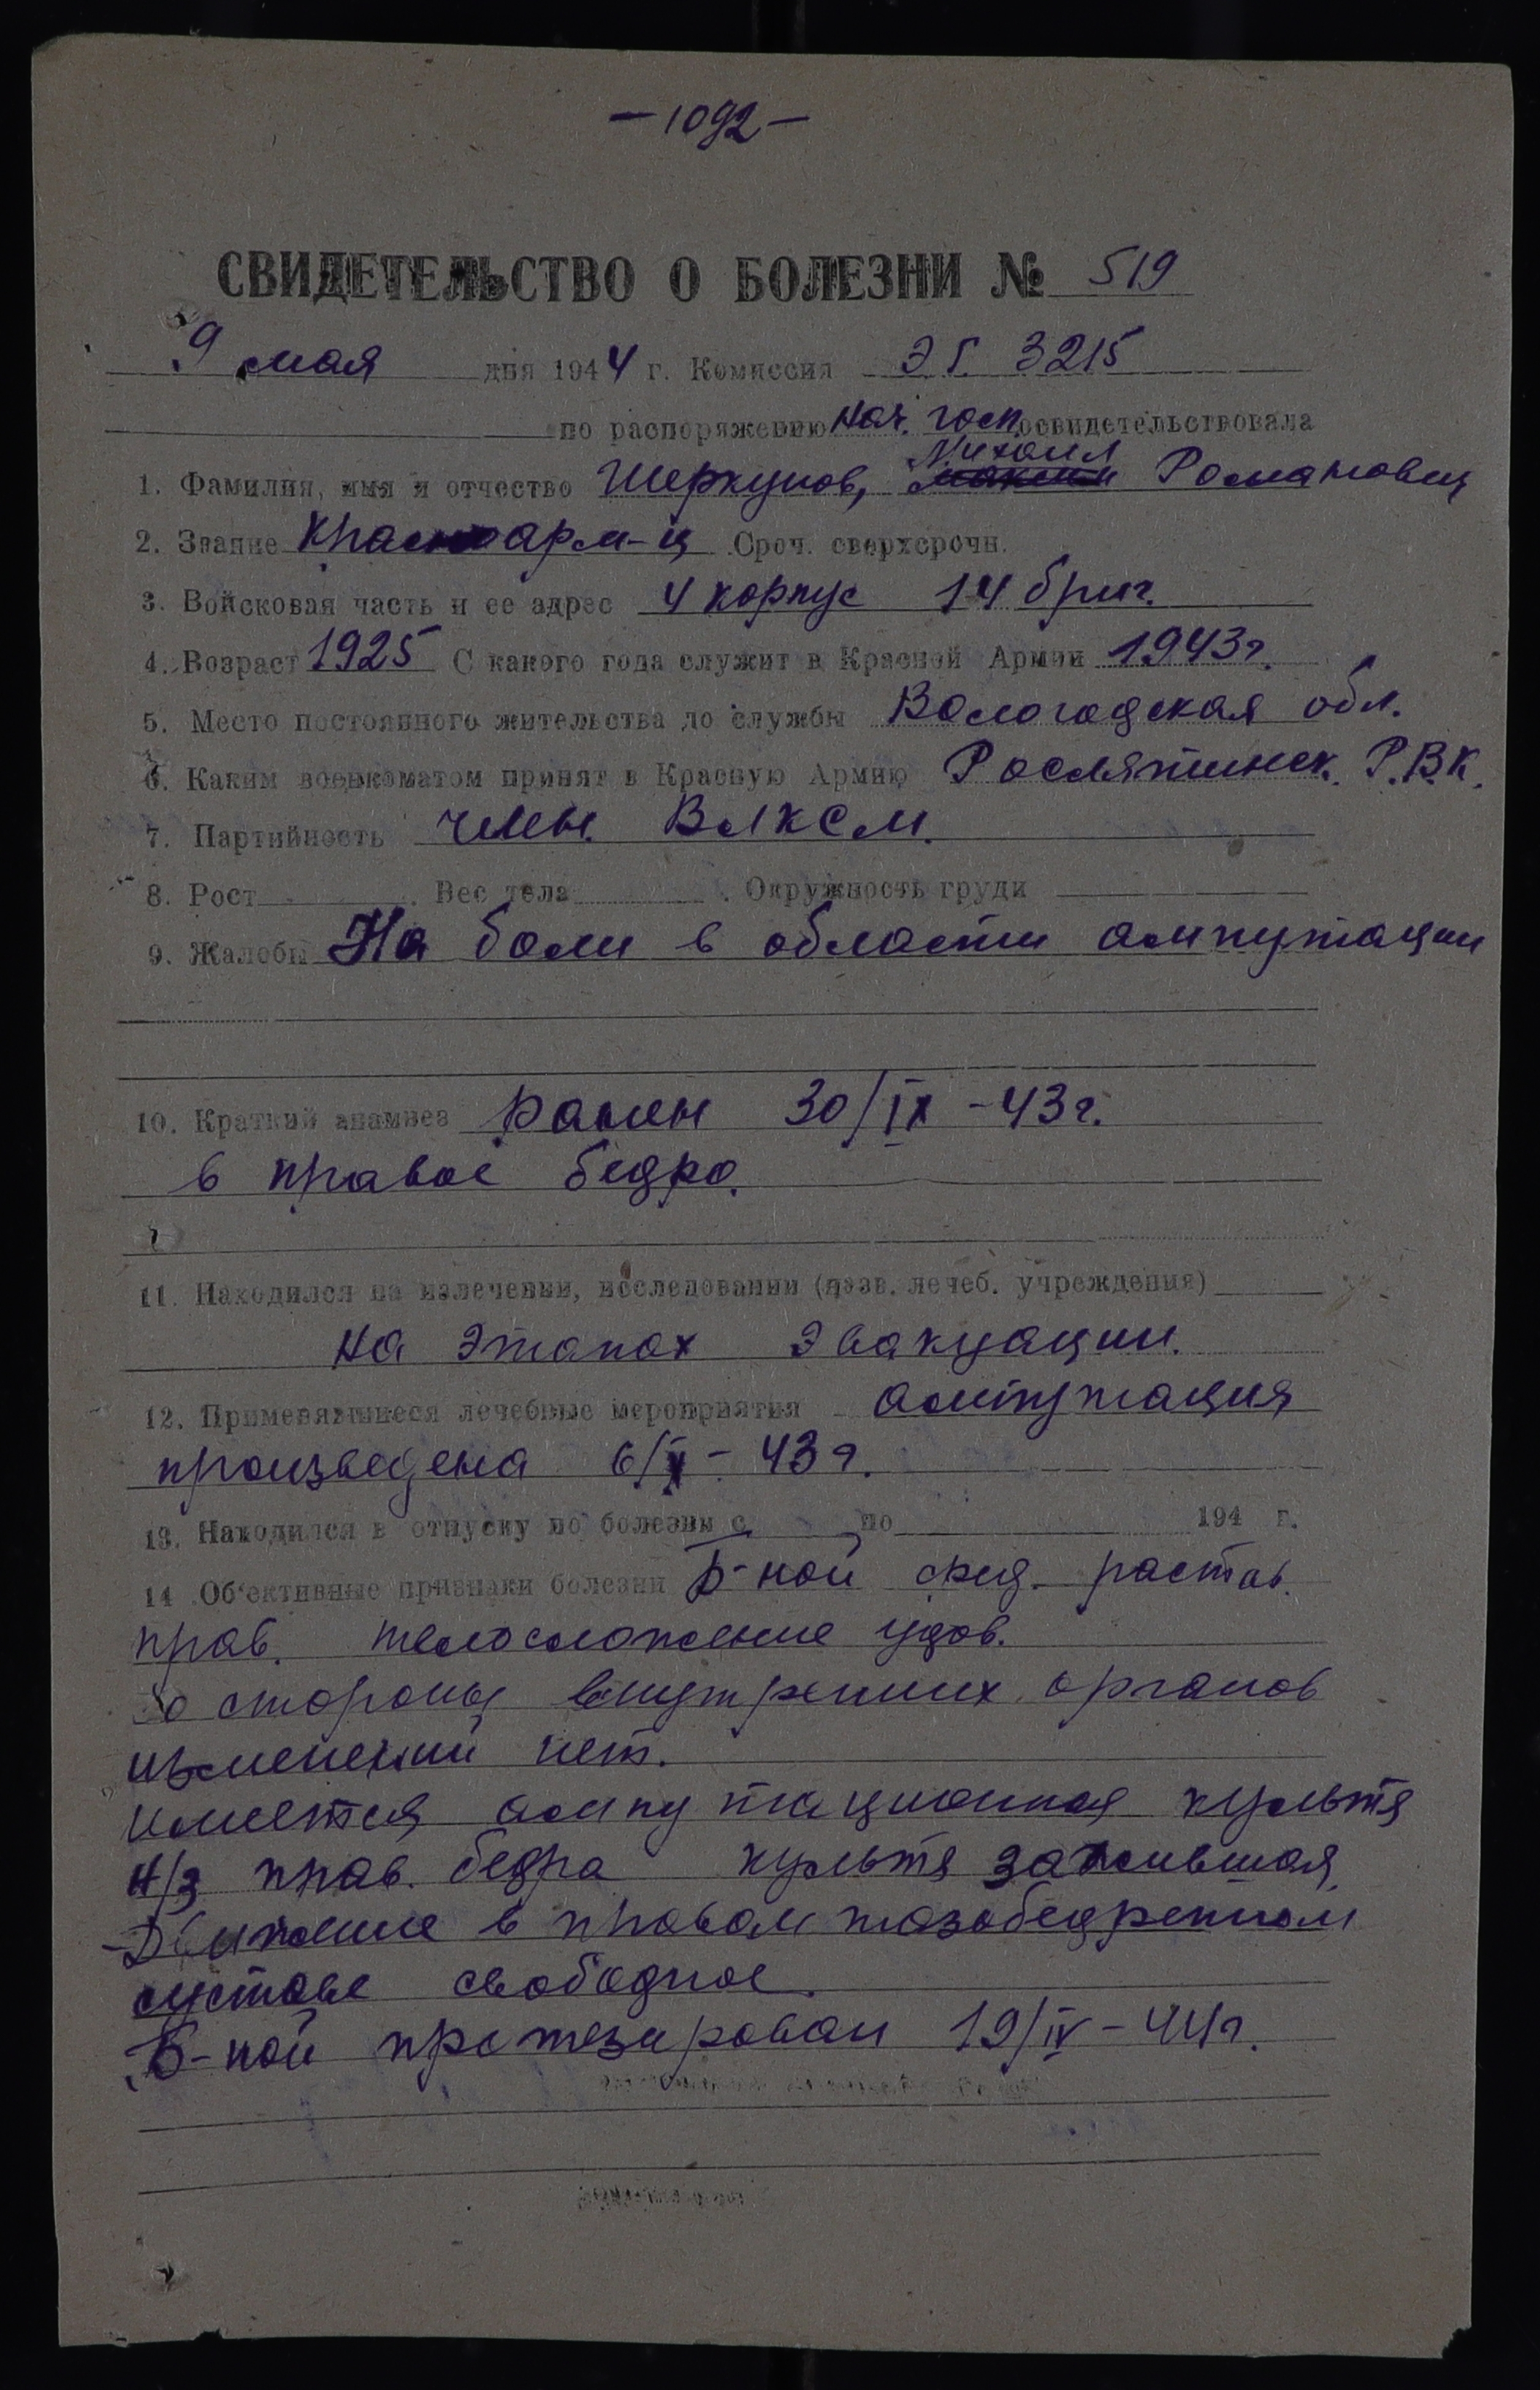 —1092—
СВИДЕТЕЛЬСТВО О БОЛЕЗНИ № 519
9 мая дня 1944 г. Комиссия Э Г. 3215
по распоряжению нач. госп. освидетельствовала
Михаил
1. Фамилия, имя и отчество Шеркунов, Романович
2. Звание Красноарм-ц Сроч. сверхсрочн.
3. Войсковая часть и ее адрес 4 корпус 14 бриг.
4. Возраст 1925 С какого года служит в Красной Армии 1943г.
5. Место постоянного жительства до службы Вологодская обл.
6. Каким военкоматом принят в Красную Армию Рослятинск. Р.В.К.
7. Партийность член. ВЛКСМ.
8. Рост . Вес тела . Окружность груди
9. Жалобы На боли в области ампутации
10. Краткий анамнез Ранен 30/IX-43г.
в правое бедро.
11. Находился на излечении, исследовании (назв. лечеб. учреждения)
на этапах эвакуации.
12. Применявшиеся лечебные мероприятия ампутация
произведена 6/X-43г.
13. Находился в отпуску по болезни с по 194 г.
14 Об'ективные признаки болезни Б-ной сред. растав.
прав. телосложение удов.
со стороны внутренних органов
изменений нет.
имеется ампутационная культя
н/з прав. бедра культя зажившая,
Движение в правом тазобедренном
суставе свободное.
Б-ной протезирован 19/IV-44г.